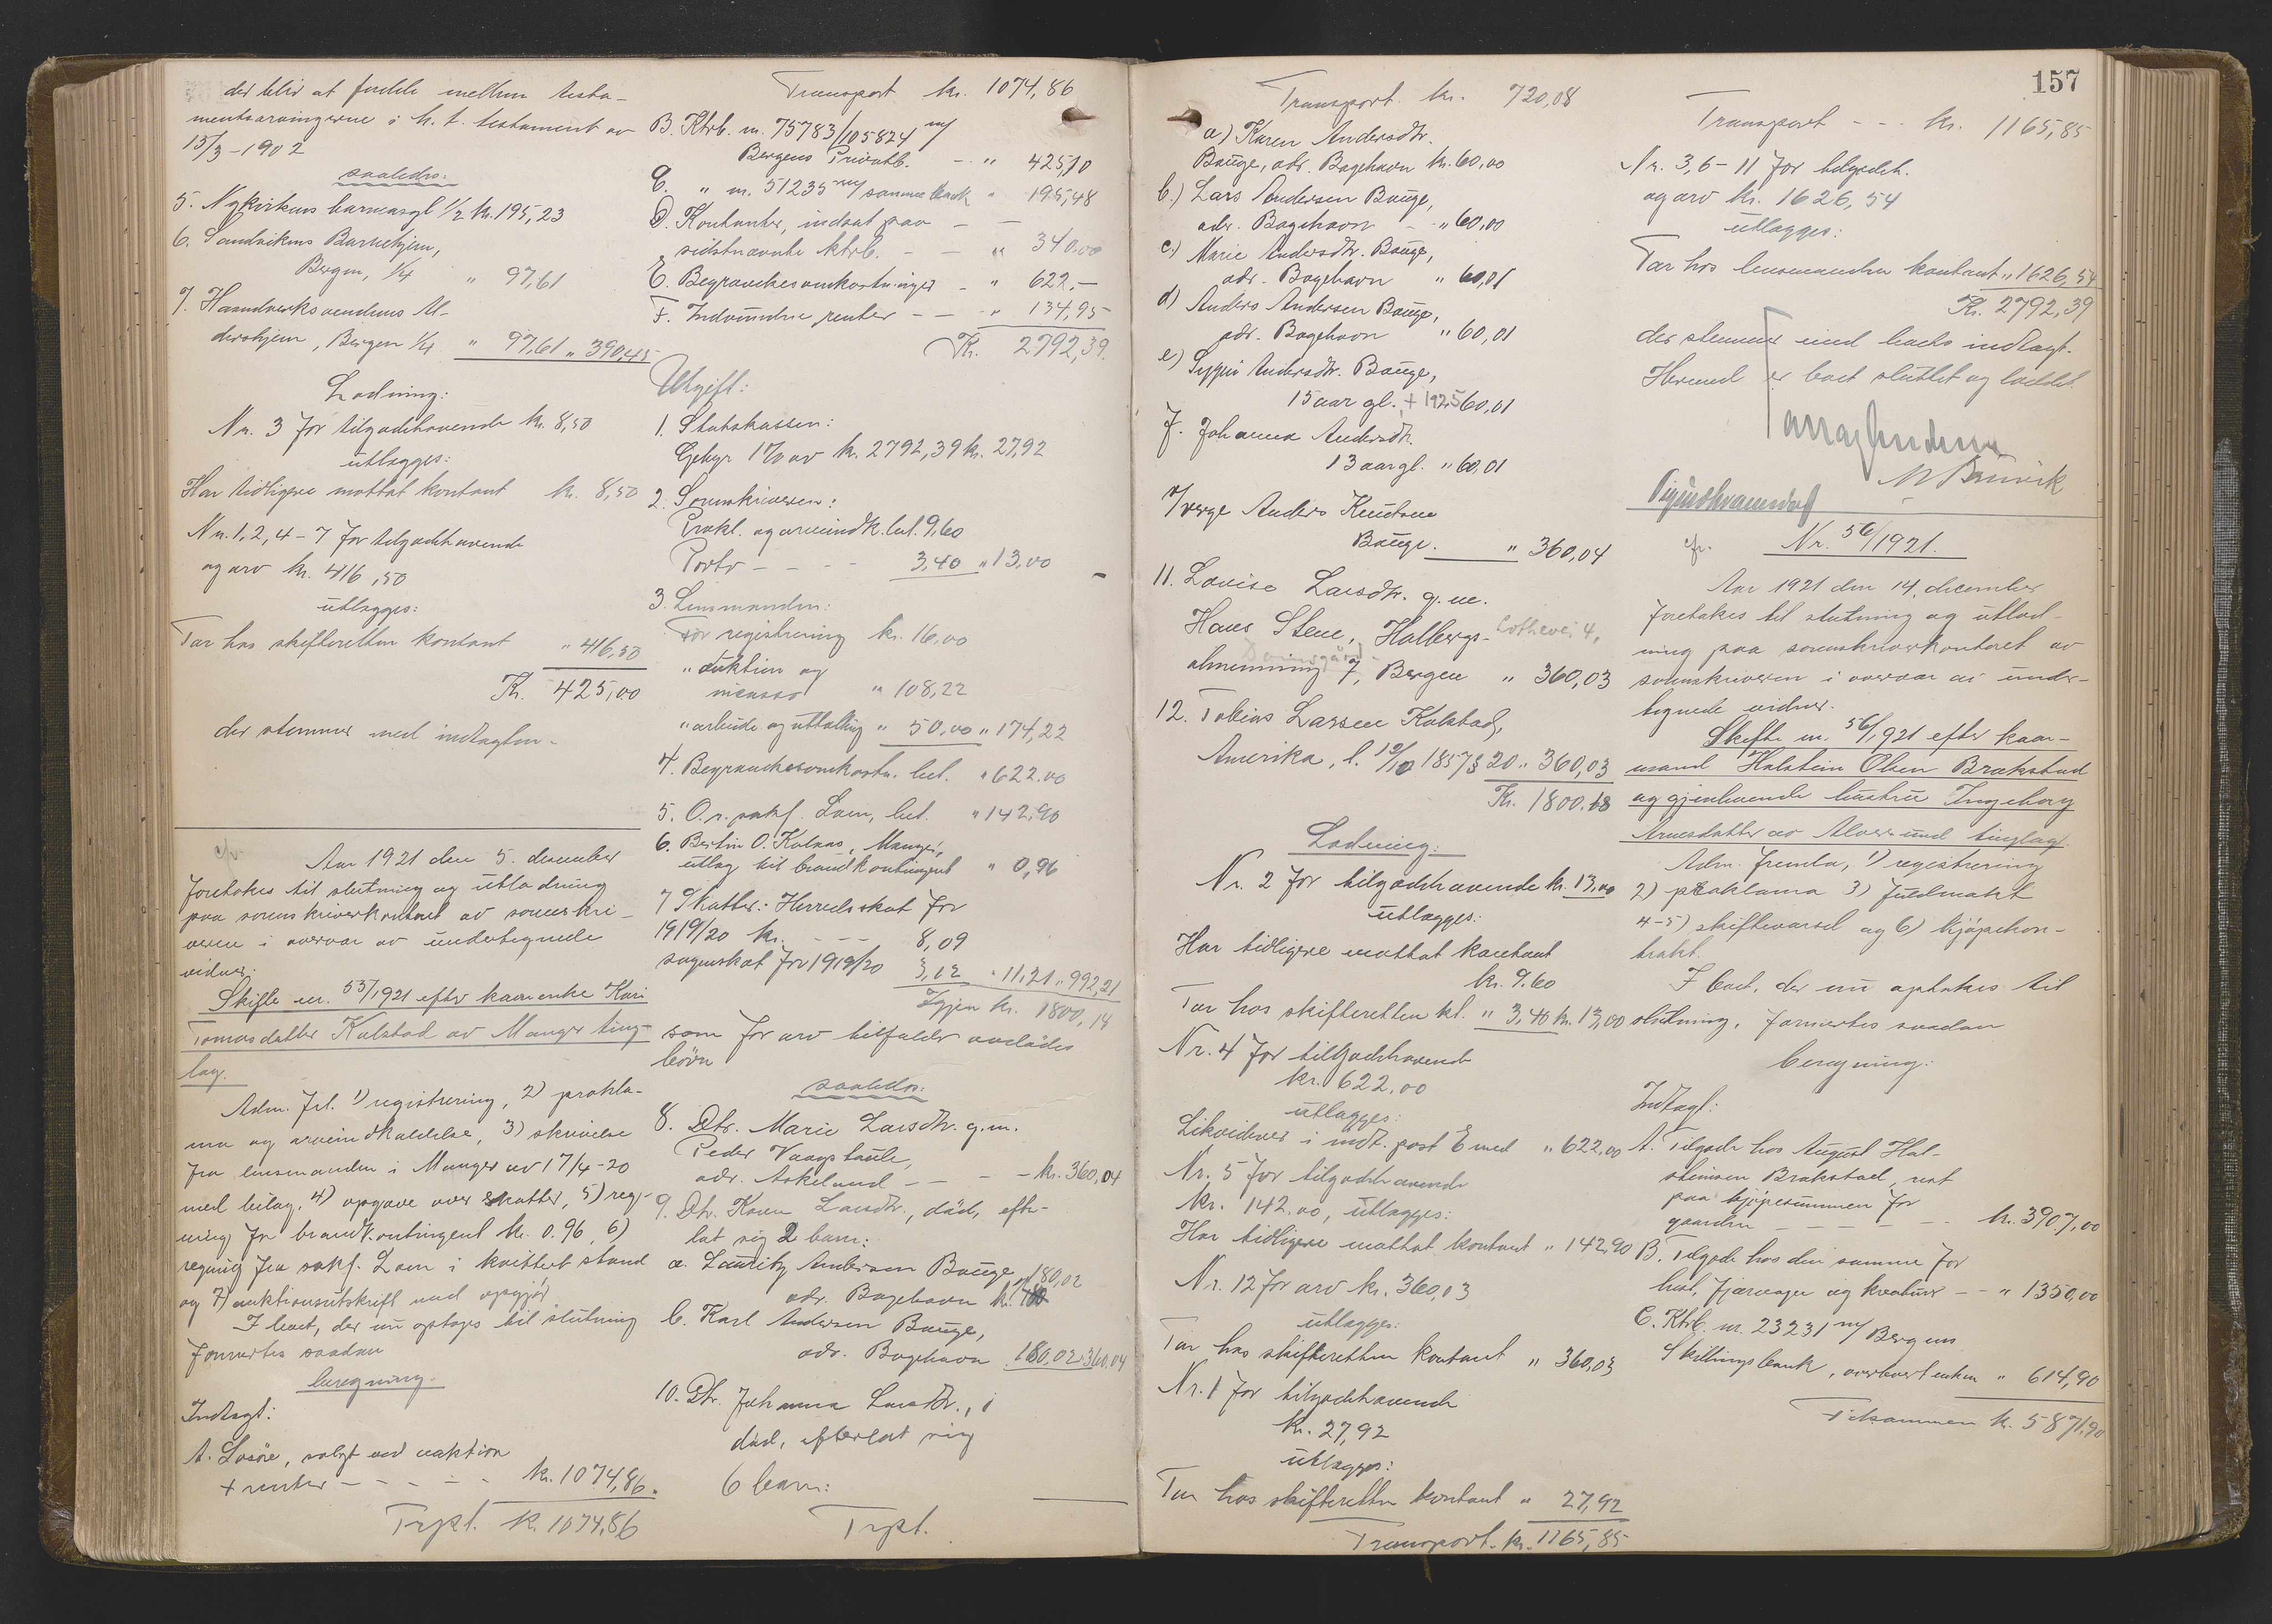 der blir at fordele mellem testa-
mentsarvingerne i h. t. testament av
15/3-1902
saaledes:
5. Nykirkens barneasyl 1/2 kr. 195,23
6. Sandvikens Barnehjem,
Bergen, 1/4 " 97,61
7. Haandverksvendenes Al-
dershjem, Bergen 1/4 " 97,61 " 390,45
Lodning:
Nr. 3 for tilgodehavende kr. 8,50
utlægges:
Har tidligere mottat kontant kr. 8,50
Nr. 1, 2, 4-7 for tilgodehavende
og arv kr. 416,50
utlægges:
Tar hos skifteretten kontant " 416,50
Kr. 425,00
der stemmer med indtægten.
Aar 1921 den 5. desember
foretokes til slutning og utlodning
paa sorenskriverkontoret av sorenskri-
veren i overvær av undertegnede
vidner.
Skifte nr. 53/1921 efter kaarenke Kari
Tomasdatter Kolstad av Manger ting-
lag.
Adm. frl. 1) registrering, 2) prokla-
ma og arveindkaldelse, 3) skrivelse
fra lensmanden i Manger av 17/4-20
med bilag, 4) opgave over skatter, 5) reg-
ning for brandkontingent kr. 0.96, 6)
regning fra sakf. Lom i kvittert stand
og 7) auktionsutskrift med opgjør
I boet, der nu optages til slutning
formertes saadan
beregning.
Indtægt:
A. Løsøre, solgt ved auktion
+ renter - - - - kr. 1074,86.
Trpt. kr. 1074,86
Transport kr. 1074,86
B. Ktrb. nr. 75783/105824 m/
Bergens Privatb. - " 425,10
C. " nr. 51235 m/ samme bank " 195,48
D. Kontanter, indsat paa
sidstnævnte ktrb. - - " 340.00
E. Begravelsesomkostninger - " 622.-
F. Indvundne renter - - " 134,95
Kr. 2792,39.
Utgift:
1. Statskassen:
Gebyr 1% av kr. 2792,39 kr. 27,92
2. Sorenskriveren:
Prokl. og arveindk. bet. 9,60
Porto - - - - 3,40 " 13,00
3. Lensmanden:
For registrering kr. 16,00
" auktion og
incasso " 108,22
" arbeide og uttælling " 50,00 " 174,22
4. Begravelsesomkostn. bet. " 622.00
5. O. r. sakf. Lom, bet. " 142,90
6. Bertin O. Kolaas, Manger,
utlæg til brandkontingent " 0,96
7 Skatter: Herredsskat for
1919/20 kr. - - - 8,09
sogneskat for 1919/20 3,12 " 11,21 " 992,21
Igjen kr. 1800,18
som for arv tilfalder avdødes
børn
saaledes:
8. Dtr. Marie Larsdtr. g. m.
Peder Vaagstaule,
adr. Askeland - - - kr. 360,04
9. Dtr. Karen Larsdtr., død, efter-
lat sig 2 barn:
a. Lauritz Andersen Bauge, 180,02
adr. Bøgehavn kr.
b. Karl Andersen Bauge,
adr. Bøgehavn 180,02 " 360,04
10. Dtr. Johanna Larsdtr.,
død, efterlat sig
6 barn:
Trpt.
157
Transport. kr. 720,08
a) Karen Andersdtr.
Bauge, adr. Bøgehavn kr. 60,00
b.) Lars Andersen Bauge,
adr. Bøgehavn - " 60,00
c.) Marie Andersdtr. Bauge,
adr. Bøgehavn " 60,01
d) Anders Andersen Bauge,
adr. Bøgehavn " 60,01
e) Andersdtr. Bauge,
15 aar gl. + 1925 60,01
f. Johanna Andersdtr.
13 aar gl. " 60,01
v/ verge Anders Knutsen
Bauge. " 360,04
11. Lovise Larsdtr. g. m.
Hans Stene, Holbergs- Lothevei 4,
almenning 7, Bergen " 360,03
12. Tobias Larsen Kolstad,
Amerika, f. 19/10 1857 § 20 " 360,03
Kr. 1800.18
Lodning:
Nr. 2 for tilgodehavende kr. 13,00
utlægges:
Har tidligere mottat kontant
kr. 9.60
Tar hos skifteretten kt. " 3,40 kr. 13,00
Nr. 4 for tilgodehavende
kr. 622.00
utlægges:
Likvideres i indt. post E med " 622,00
Nr. 5 for tilgodehavende
kr. 142.90, utlægges:
Har tidligere mottat kontant " 142,90
Nr. 12 for arv kr. 360,03
utlægges:
Tar hos skifteretten kontant " 360,03
Nr. 1 for tilgodehavende
kr. 27,92
utlægges:
Tar hos skifteretten kontant " 27,92
Transport. kr. 1165,85
Transport - - - kr. 1165,85
Nr. 3, 6-11 for tilgodeh.
og arv kr. 1626,54
utlægges:
Tar hos lensmanden kontant " 1626,54
Kr. 2792,39
der stemmer med boets indtægt.
Hermed er boet sluttet og loddet
Nr. 56/1921.
Aar 1921 den 14. december
foretokes til slutning og utlod-
ning paa sorenskriverkontoret av
sorenskriveren i overvær av under-
tegnede vidner.
Skifte nr. 56/1921 efter kaar-
mand Halstein Olsen Brakstad
og gjenlevende hustru Ingeborg
Arnesdatter av Alversund tinglag.
Adm. fremla, 1) registrering
2) proklama 3) fuldmakt
4-5) skiftevarsel og 6) kjøpekon-
trakt.
I boet, der nu optakes til
slutning, formertes saadan
beregning:
Indtægt:
A. Tilgode hos August Hal-
steinsen Brakstad, rest
paa kjøpesummen for
gaarden - - - - - kr. 3907,00
B. Tilgode hos den samme for
hest, fjærvogn og kreaturer - - " 1350,00
C. Ktrb. nr. 23231 m/ Bergens
Skillingsbank, overlevert enken " 614,90
Tilsammen kr. 5871,90